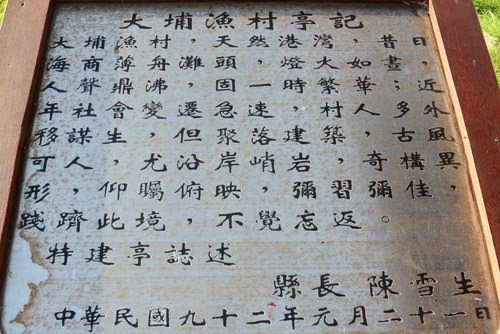 大埔漁村亭記
大埔漁村，天然港灣，昔日，
海商薄舟灘頭，燈火如晝；
人聲鼎沸，固一時繁華；近
年社會變遷急速，村人多外
移謀生，但聚落建築，古風
可人，尤沿岸峭岩，奇構異
形，仰矚俯映，彌習彌佳，
踐躋此境，不覺忘返。
特建亭誌述
縣長 陳雪生
中華民國九十二年元月二十一日